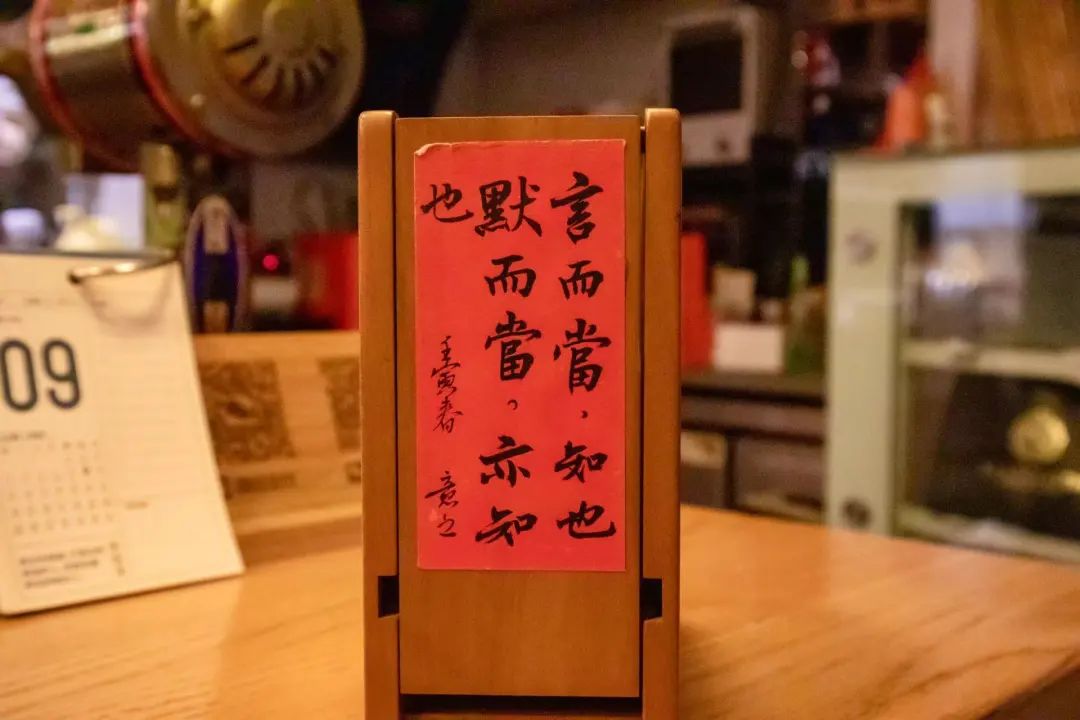 言而當,知也
默而當。亦知
也
壬寅春
09